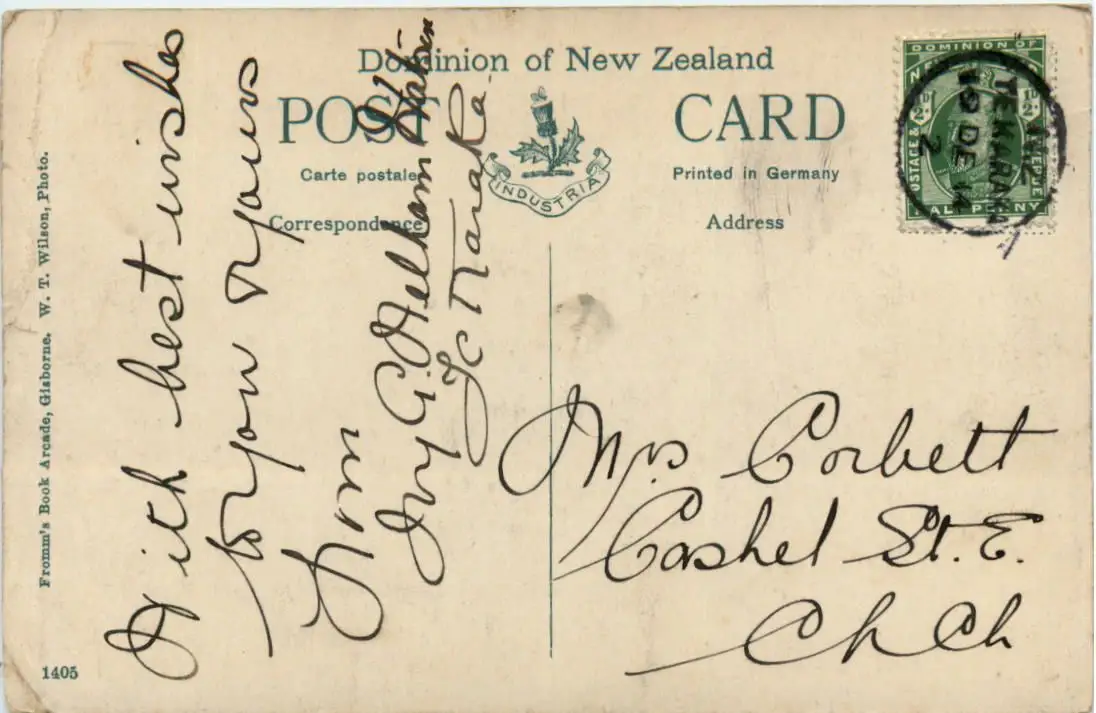 Dominion of New Zealand
POST CARD
Carte postale
Printed in Germany
INDUSTRIA
Correspondence
Address
Fromm's Book Arcade, Gisborne. W. T. Wilson, Photo.
1405
With best wishes
to you & yours
from
Ivy G.
Te Karaka
Mrs Corbett
Cashel St. E.
Ch Ch
DOMINION OF
POSTAGE &
HALF PENNY
TE KARAKA
19 DE 14
2
N.Z